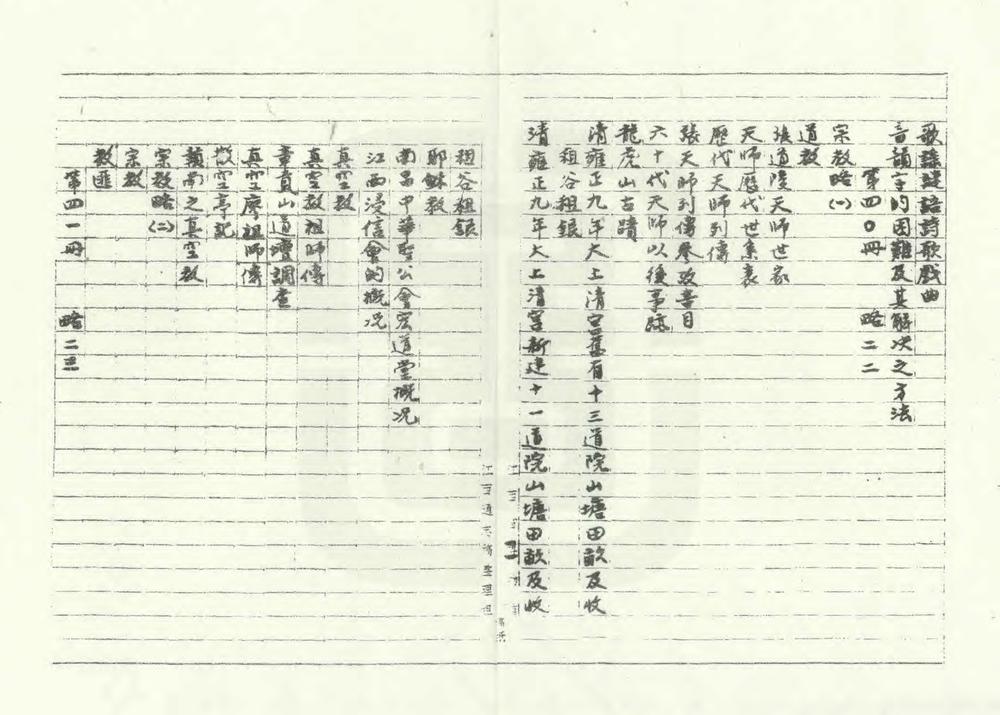 歌謠謎語詩歌戲曲
音韻字的困難及其解決之方法
第四〇冊 略二二
宗教略(一)
道教
張道陵天師世家
天師歷代世系表
歷代天師列傳
張天師列傳參攷書目
六十代天師以後事蹟
龍虎山古蹟
清雍正九年大上清宮舊有十三道院山塘田畝及收
租谷租銀
清雍正九年大上清宮新建十一道院山塘田畝及收
租谷租銀
耶穌教
南昌中華聖公會宏道堂概況
江西浸信會的概况
真空教
真空教祖師傳
章貢山道壇調查
真空廖祖師傳
放空亭記
贛南之真空教
宗教略(二)
宗教
教匪
第四一冊 略二三
江西通志稿整理